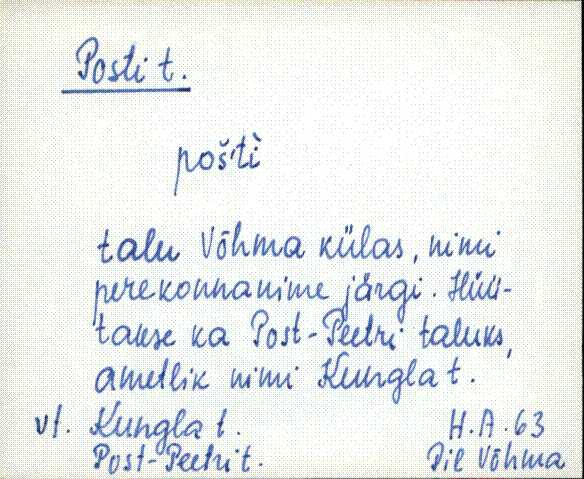 Posti t.
pošti̬
talu Võhma külas, nimi
perekonnanime järgi. Hüü-
takse ka Post-Peetri taluks,
ametlik nimi Kungla t.
vt. Kungla t. H.A. 63
Post-Peetri t. Pil Võhma